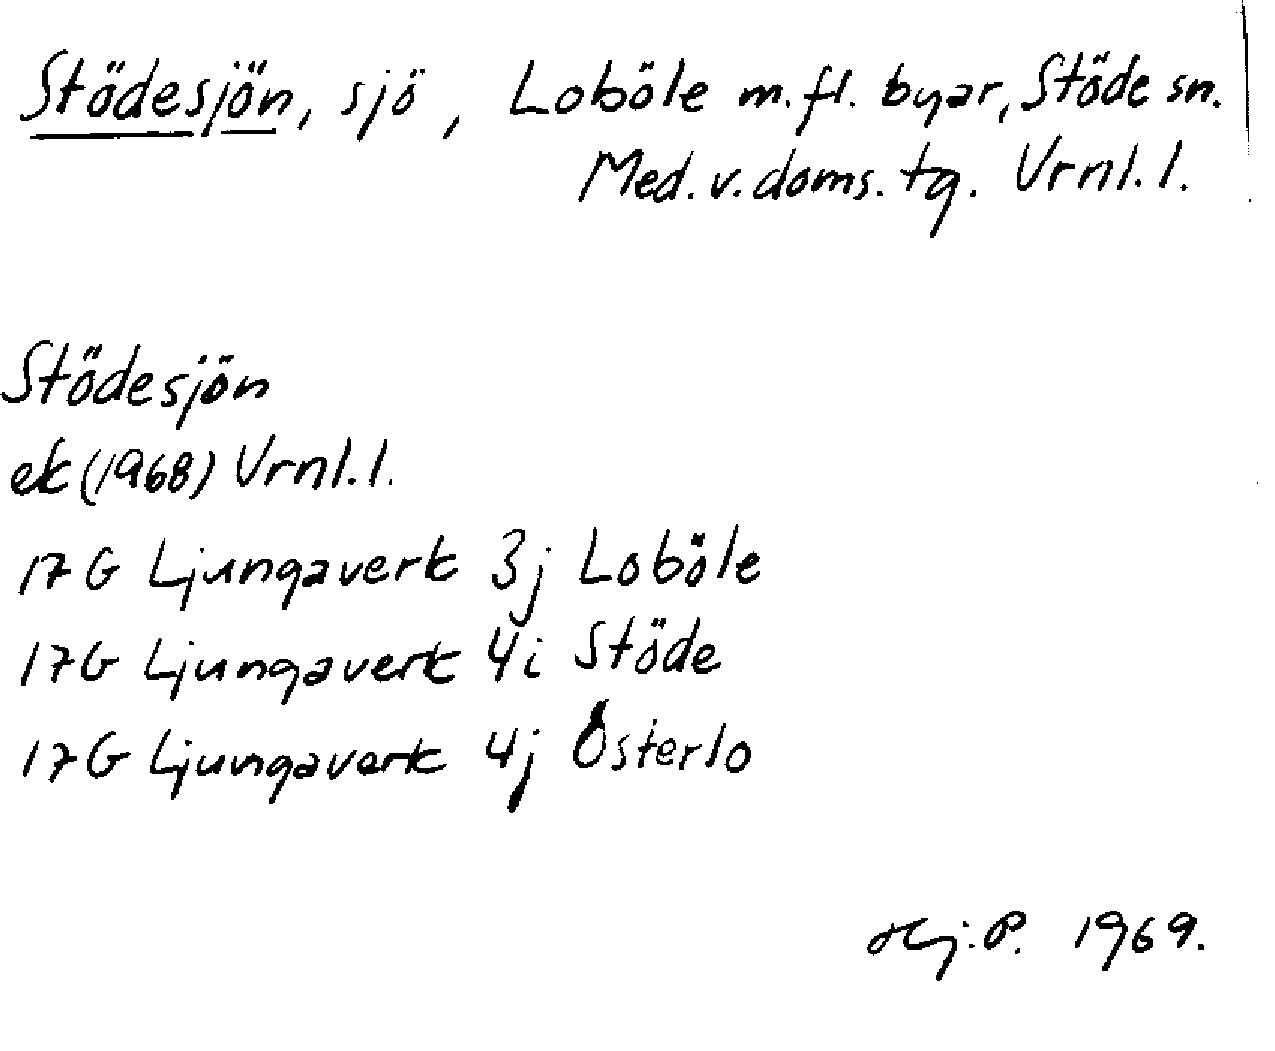 Stödesjön, sjö, Loböle m.fl. byar, Stöde sn.
Med. v. doms. tg. Vrnl. l.
Stödesjön
ek (1968) Vrnl. l.
17G Ljungaverk 3j Loböle
17G Ljungaverk 4i Stöde
17G Ljungaverk 4j Österlo
Hj. P. 1969.